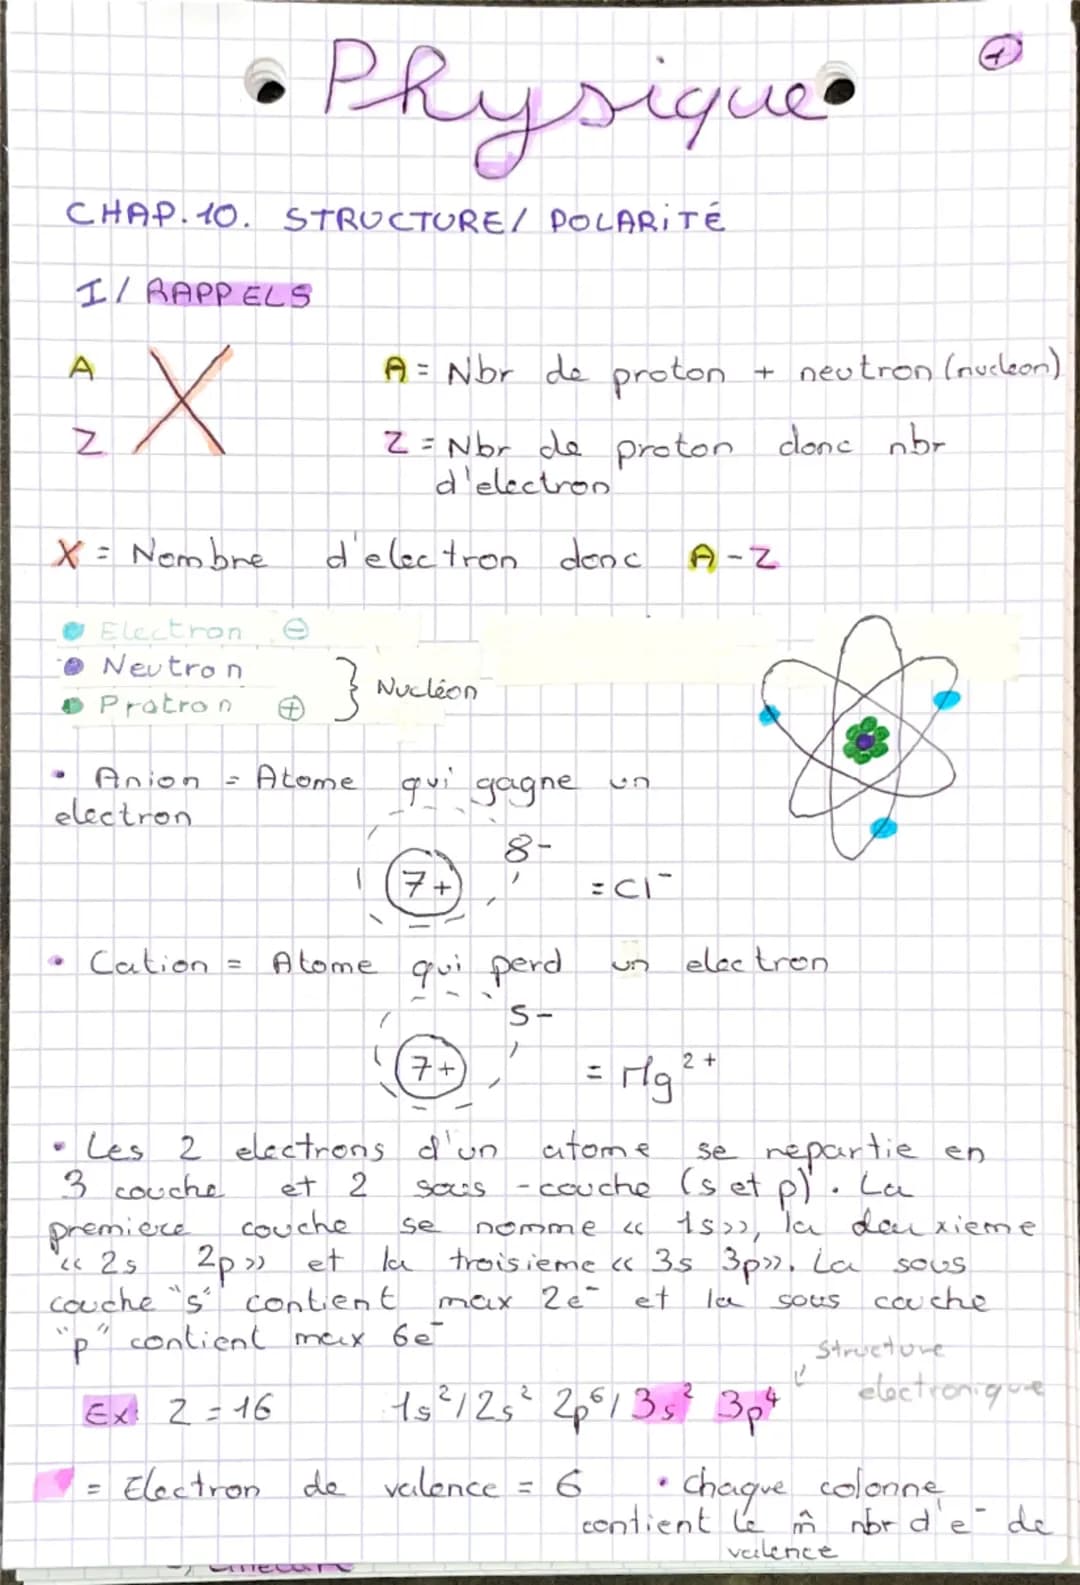 Physique
1
CHAP. 10. STRUCTURE / POLARITÉ
I / RAPPELS
A
Z
X
A = Nbr de proton + neutron (nucleon)
Z = Nbr de proton donc nbr
d'electron
X = Nombre d'electron donc A - Z
Electron ⊖
Neutron
Protron ⊕
} Nucléon
• Anion = Atome qui gagne un
electron
7+ 8- = Cl⁻
• Cation = Atome qui perd un electron
7+ 5- = Mg²⁺
• Les 2 electrons d'un atome se repartie en
3 couche et 2 sous-couche (s et p). La
premiere couche se nomme « 1s », la deuxieme
« 2s 2p » et la troisieme « 3s 3p ». La sous
couche "s" contient max 2e⁻ et la sous couche
"p" contient max 6e⁻
Structure
electronique
Ex: Z = 16 1s² / 2s² 2p⁶ / 3s² 3p⁴
= Electron de valence = 6
• Chaque colonne
contient le m̂ nbr d'e⁻ de
valence